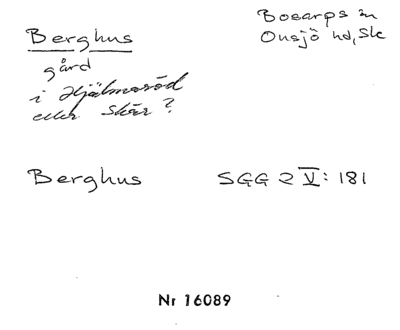 Berghus
Bosarps sn
Onsjö hd, Sk
gård
i Hjälmaröd
eller Skär?
Berghus SGG 2 V: 181
Nr 16089